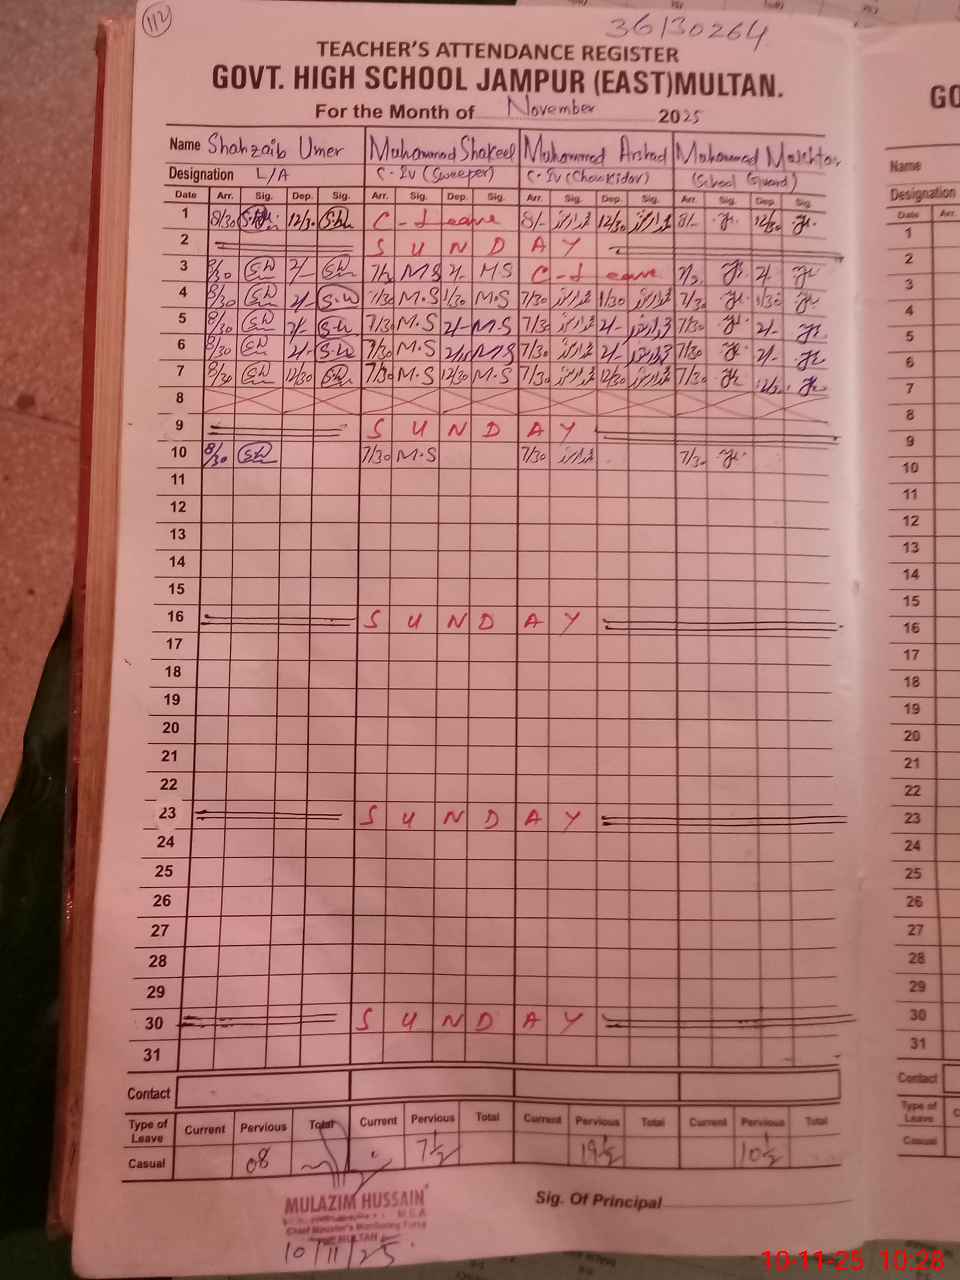 112
36130264
TEACHER'S ATTENDANCE REGISTER
GOVT. HIGH SCHOOL JAMPUR (EAST)MULTAN.
For the Month of November 2025
Name Shahzaib Umer Muhammad Shakeel Muhammad Arshad Muhammad Mukhtar
Designation L/A C-IV (Sweeper) C-IV (Chowkidar) (School Guard)
Date Arr. Sig. Dep. Sig. Arr. Sig. Dep. Sig. Arr. Sig. Dep. Sig. Arr. Sig. Dep. Sig.
1 8/30 12/30 C-Leave 8/- 12/30 8/- 12/30
2 S U N D A Y
3 8/30 SU 2/- SU 7/30 M S 2/- M S C-Leave 7/30 2/-
4 8/30 SU 2/- S.U 7/30 M.S 1/30 M.S 7/30 1/30 7/30 1/30
5 8/30 SU 2/- S.U 7/30 M.S 2/- M.S 7/30 2/- 7/30 2/-
6 8/30 SU 2/- S.U 7/30 M.S 2/- M.S 7/30 2/- 7/30 2/-
7 8/30 SU 12/30 SU 7/30 M.S 12/30 M.S 7/30 12/30 7/30 12/30
8
9 S U N D A Y
10 8/30 SU 7/30 M.S 7/30 7/30
11
12
13
14
15
16 S U N D A Y
17
18
19
20
21
22
23 S U N D A Y
24
25
26
27
28
29
30 S U N D A Y
31
Contact
Type of Leave Current Pervious Total Current Pervious Total Current Pervious Total Current Pervious Total
Casual 08 7 1/2 19 1/2 10 1/2
MULAZIM HUSSAIN
M.E.A
Chief Minister's Monitoring Force
MULTAN
10/11/25
Sig. Of Principal
GO
Name
Designation
Date Arr.
1
2
3
4
5
6
7
8
9
10
11
12
13
14
15
16
17
18
19
20
21
22
23
24
25
26
27
28
29
30
31
Contact
Type of Leave C
Casual
10-11-25 10:28